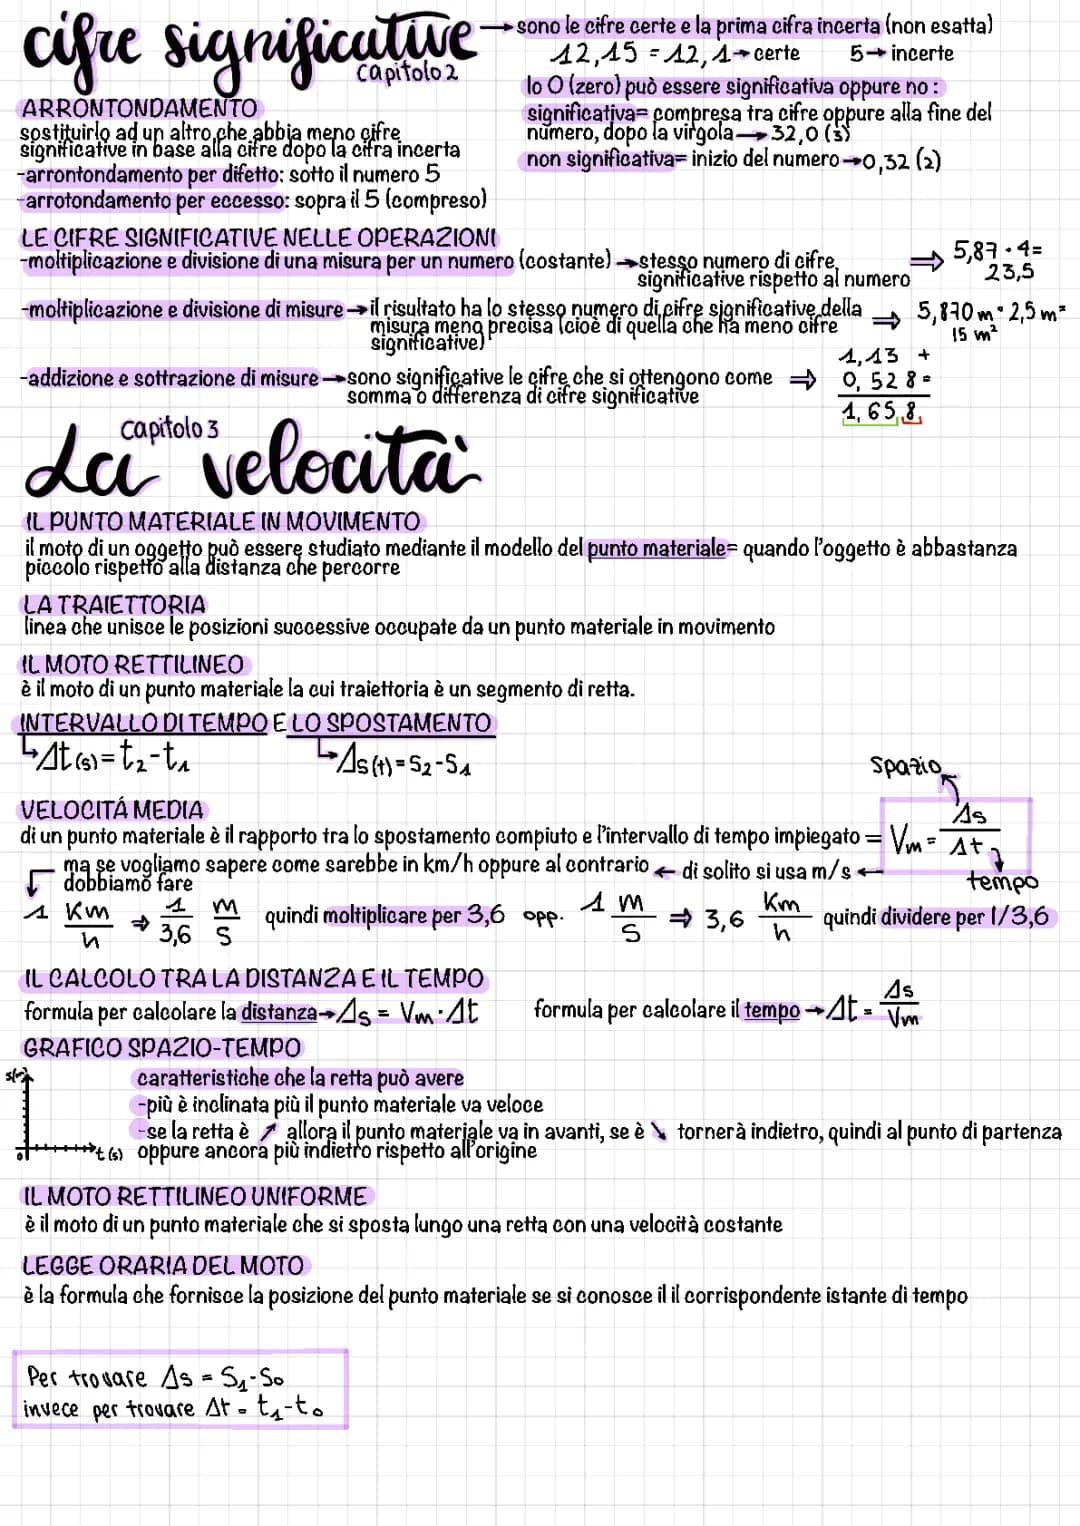 cifre significative
Capitolo 2
→ sono le cifre certe e la prima cifra incerta (non esatta)
12,15 = 12,1 → certe 5 → incerte
lo 0 (zero) può essere significativa oppure no :
significativa= compresa tra cifre oppure alla fine del
numero, dopo la virgola → 32,0 (3)
non significativa= inizio del numero → 0,32 (2)
ARRONTONDAMENTO
sostituirlo ad un altro che abbia meno cifre
significative in base alla cifre dopo la cifra incerta
-arrontondamento per difetto: sotto il numero 5
-arrotondamento per eccesso: sopra il 5 (compreso)
LE CIFRE SIGNIFICATIVE NELLE OPERAZIONI
-moltiplicazione e divisione di una misura per un numero (costante) → stesso numero di cifre
significative rispetto al numero
⇒ 5,87 · 4=
23,5
-moltiplicazione e divisione di misure → il risultato ha lo stesso numero di cifre significative della
misura meno precisa (cioè di quella che ha meno cifre
significative)
⇒ 5,870 m · 2,5 m=
15 m²
-addizione e sottrazione di misure → sono significative le cifre che si ottengono come
somma o differenza di cifre significative
⇒ 1,13 +
0,528 =
1,658
Capitolo 3
La velocità
IL PUNTO MATERIALE IN MOVIMENTO
il moto di un oggetto può essere studiato mediante il modello del punto materiale= quando l'oggetto è abbastanza
piccolo rispetto alla distanza che percorre
LA TRAIETTORIA
linea che unisce le posizioni successive occupate da un punto materiale in movimento
IL MOTO RETTILINEO
è il moto di un punto materiale la cui traiettoria è un segmento di retta.
INTERVALLO DI TEMPO E LO SPOSTAMENTO
↳ Δt (s) = t₂-t₁ ↳ Δs (t) = S₂-S₁
VELOCITÁ MEDIA
di un punto materiale è il rapporto tra lo spostamento compiuto e l'intervallo di tempo impiegato = Vm = Δs / Δt
spazio
tempo
ma se vogliamo sapere come sarebbe in km/h oppure al contrario ← di solito si usa m/s ←
dobbiamo fare
1 Km/h ⇒ 1/3,6 m/s quindi moltiplicare per 3,6 opp. 1 m/s ⇒ 3,6 Km/h quindi dividere per 1/3,6
IL CALCOLO TRA LA DISTANZA E IL TEMPO
formula per calcolare la distanza → Δs = Vm · Δt formula per calcolare il tempo → Δt = Δs/Vm
GRAFICO SPAZIO-TEMPO
s(m)
t (s)
0
caratteristiche che la retta può avere
-più è inclinata più il punto materiale va veloce
-se la retta è ↗ allora il punto materiale va in avanti, se è ↘ tornerà indietro, quindi al punto di partenza
oppure ancora più indietro rispetto all'origine
IL MOTO RETTILINEO UNIFORME
è il moto di un punto materiale che si sposta lungo una retta con una velocità costante
LEGGE ORARIA DEL MOTO
è la formula che fornisce la posizione del punto materiale se si conosce il il corrispondente istante di tempo
Per trovare Δs = S₁-S₀
invece per trovare Δt = t₁-t₀